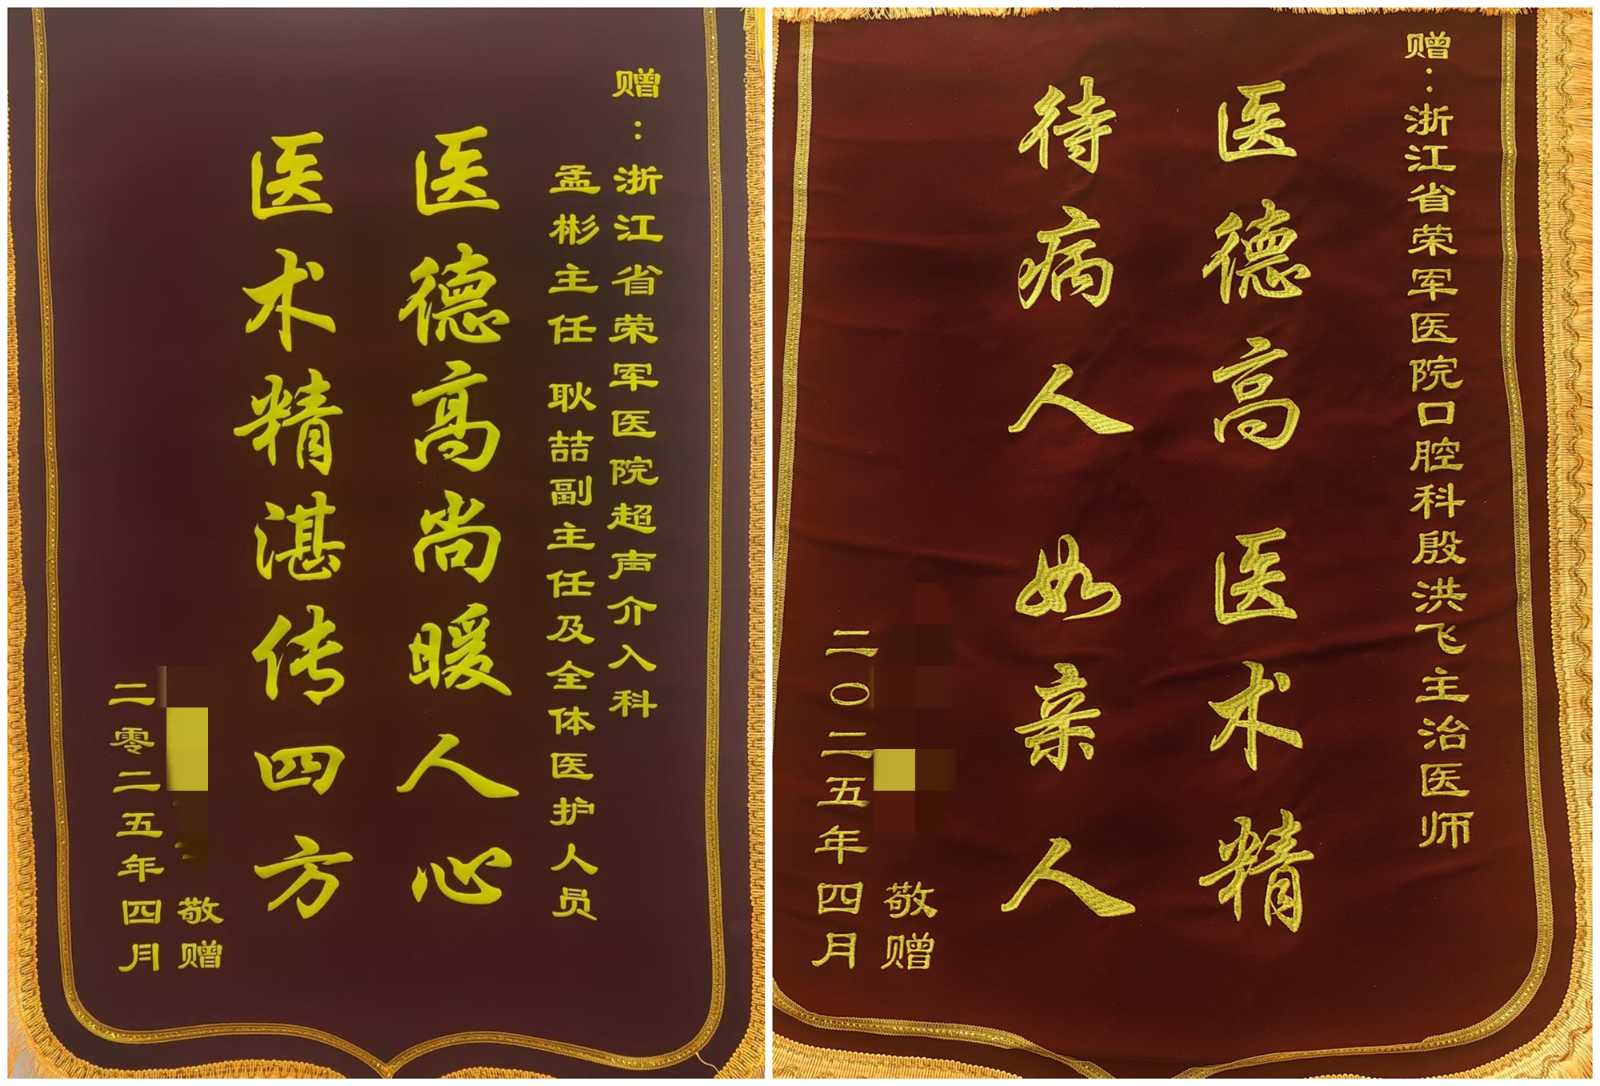 赠：浙江省荣军医院超声介入科
孟彬主任 耿喆副主任及全体医护人员
医德高尚暖人心
医术精湛传四方
敬赠
二零二五年四月
赠：浙江省荣军医院口腔科殷洪飞主治医师
医德高 医术精
待病人 如亲人
敬赠
二〇二五年四月